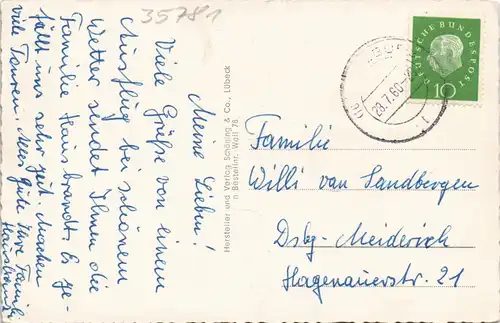 35781
Meine Lieben!
Viele Grüße von einem
Ausflug bei schönem
Wetter sendet Ihnen die
Familie Hausbrandt. Es ge-
fällt uns sehr gut. Machen
viele Touren. Alles Gute Ihre Familie
Hersteller und Verlag Schöning & Co., Lübeck
n Bestellnr. Woll 78
28.7.60
DEUTSCHE BUNDESPOST
10
Familie
Willi van Sandbergen
Dsbg-Meiderich
Hagenauerstr. 21